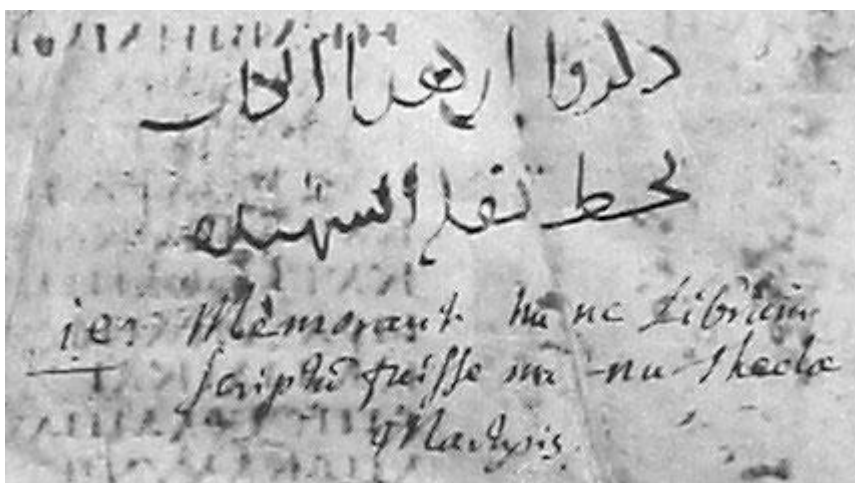 ذكروا ان هذا الكتاب
بخط تقلا الشهيده
ie: Memorant hunc Librum
scriptū fuisse manu Theclæ
Martyris.